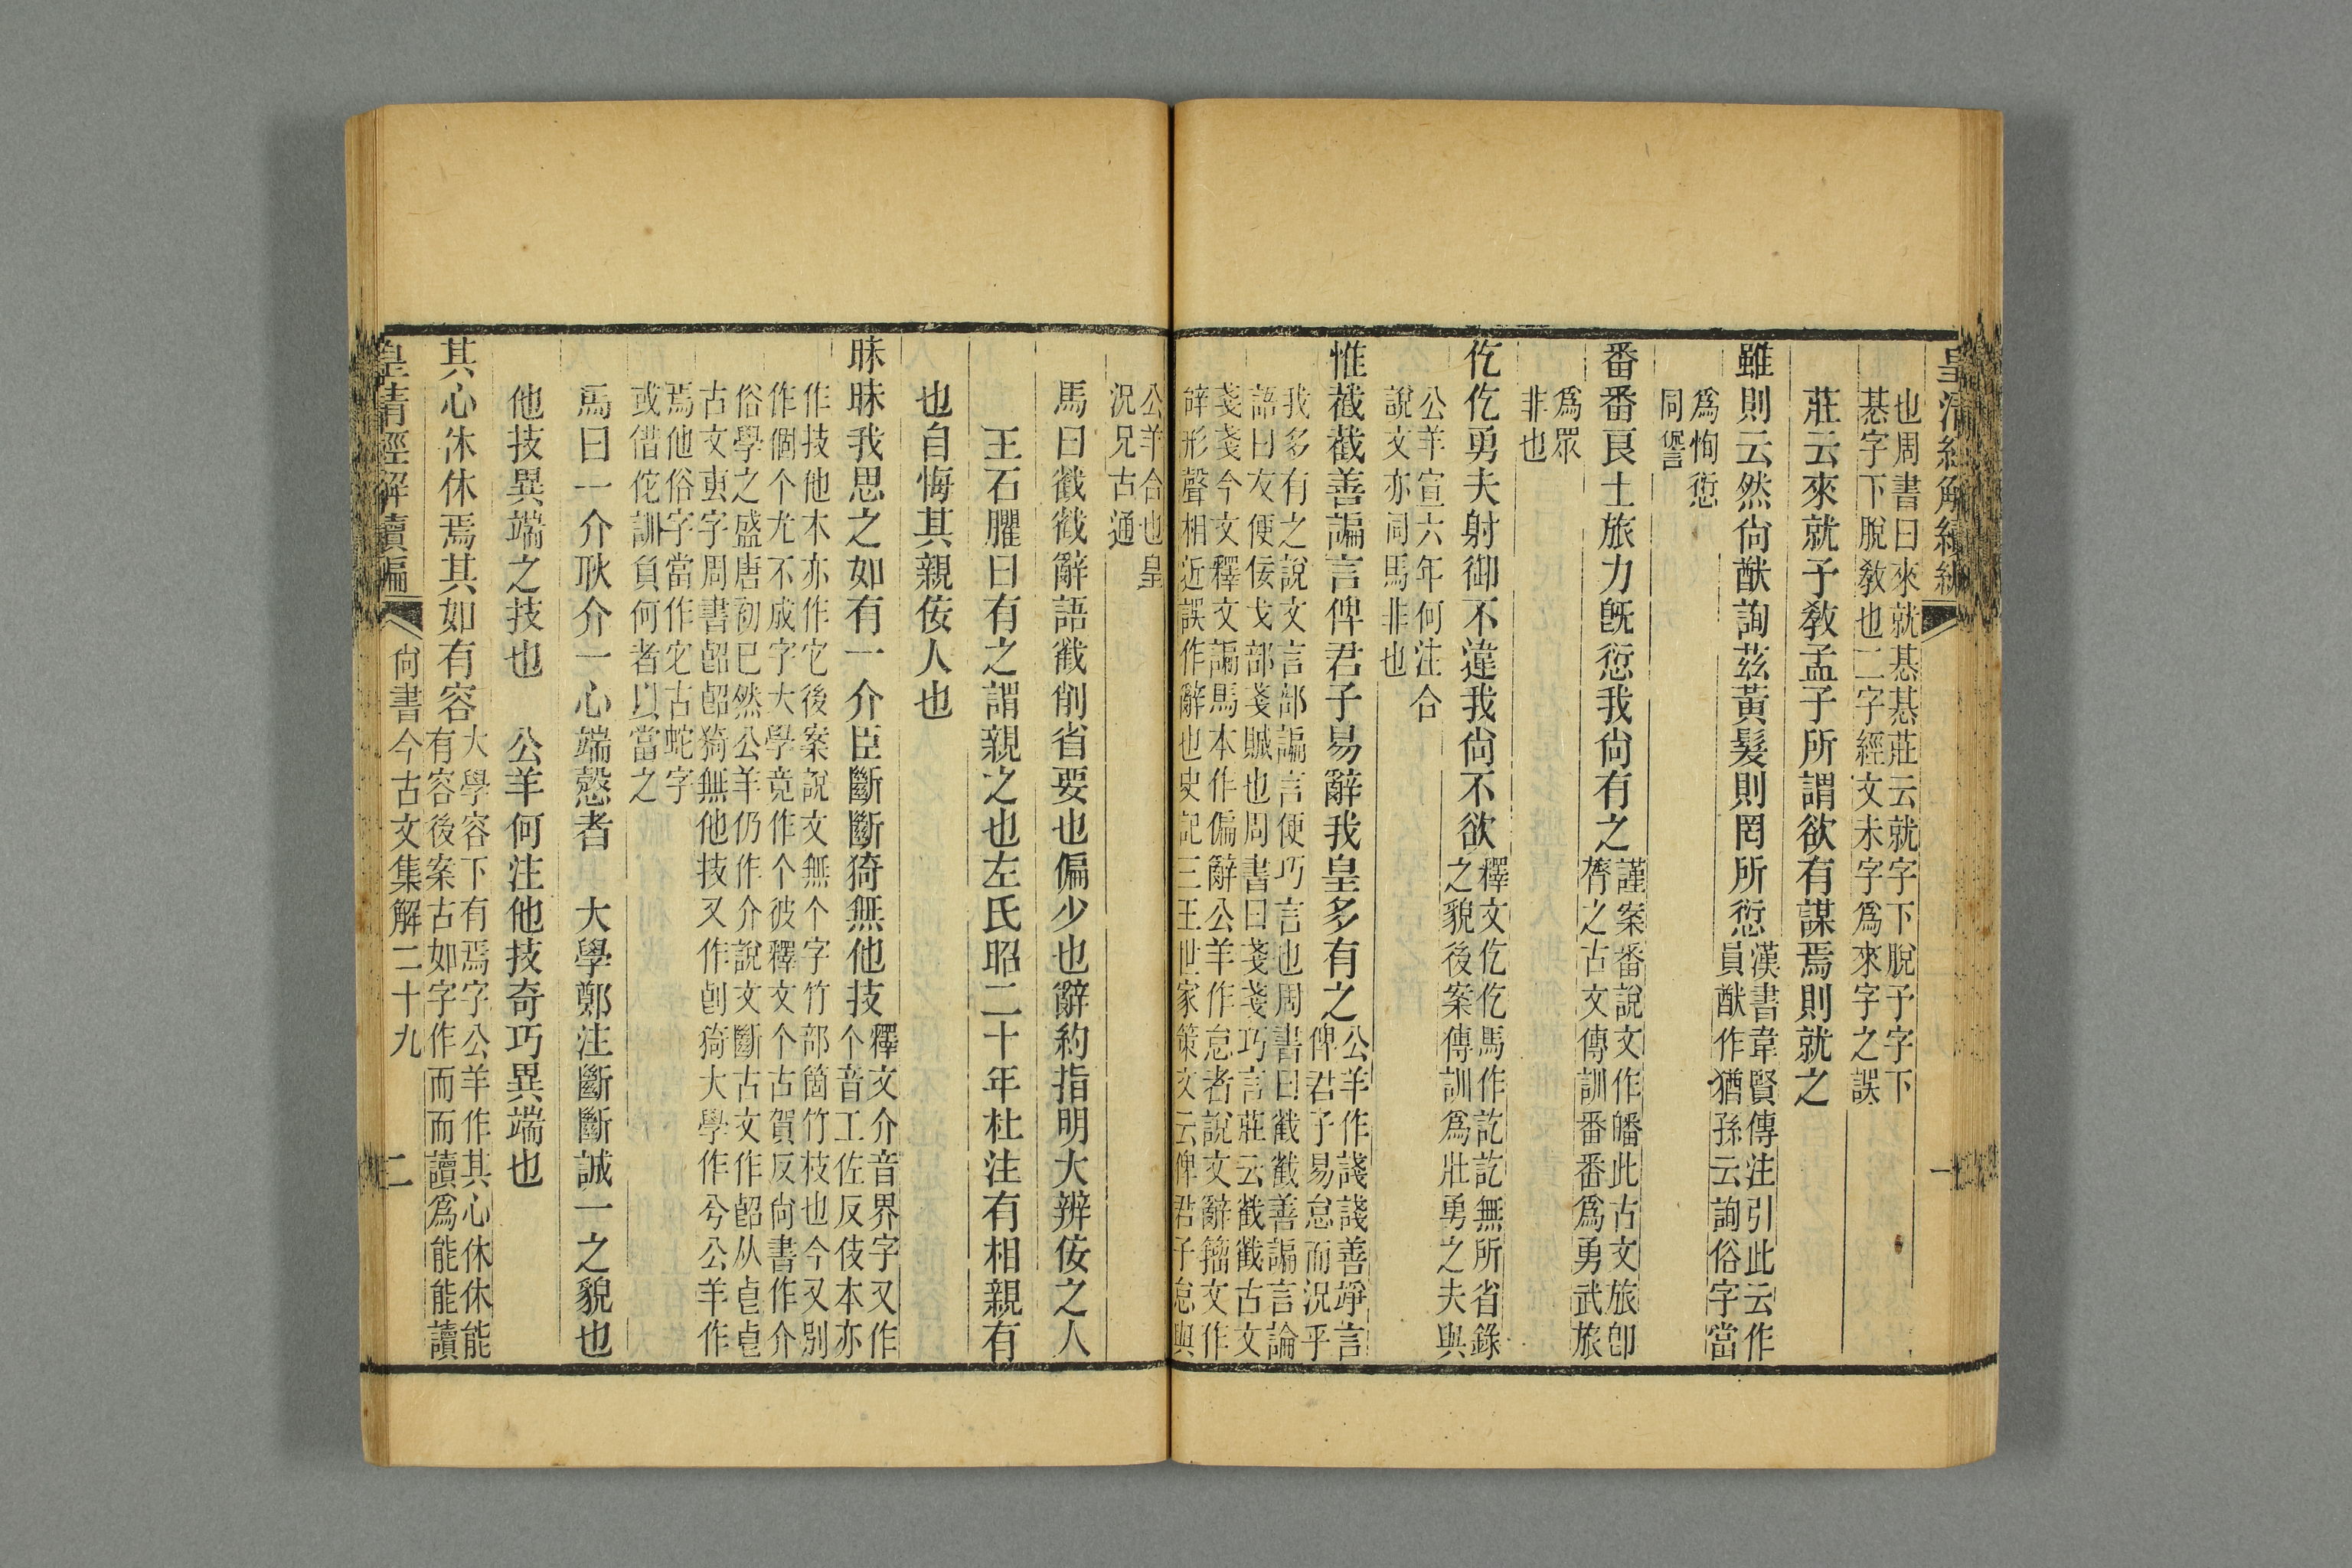 皇清經解續編
一
也周書曰來就惎惎莊云就字下脫予字下
惎字下脫敎也二字經文未字爲來字之誤
莊云來就予敎孟子所謂欲有謀焉則就之
雖則云然尙猷詢茲黃髮則罔所愆
漢書韋賢傳注引此云作
員猷作猶孫云詢俗字當
爲恂愆
同𠎝言
番番良士旅力旣愆我尙有之
謹案番說文作皤此古文旅卽
膂之古文傳訓番番爲勇武旅
爲眾
非也
仡仡勇夫射御不違我尙不欲
釋文仡仡馬作訖訖無所省錄
之貌後案傳訓爲壯勇之夫與
公羊宣六年何注合
說文亦同馬非也
惟截截善諞言俾君子易辭我皇多有之
公羊作諓諓善竫言
俾君子易怠而況乎
我多有之說文言部諞言便巧言也周書曰戳戳善諞言論
語曰友便佞戈部戔賊也周書曰戔戔巧言莊云戳戳古文
戔戔今文釋文諞馬本作偏辭公羊作怠者說文辭籀文作
辝形聲相近誤作辭也史記三王世家策文云俾君子怠與
公羊合也皇
況兄古通
馬曰戳戳辭語戳削省要也偏少也辭約指明大辨佞之人
王石臞曰有之謂親之也左氏昭二十年杜注有相親有
也自悔其親佞人也
昧昧我思之如有一介臣斷斷猗無他技
釋文介音界字又作
个音工佐反伎本亦
作技他本亦作它後案說文無个字竹部箇竹枝也今又別
作個个尤不成字大學竟作个彼釋文个古賀反尙書作介
俗學之盛唐初已然公羊仍作介說文斷古文作㫁从𠧢𠧢
古文叀字周書㫁㫁猗無他技又作㓻猗大學作兮公羊作
焉他俗字當作它古蛇字
或借佗訓負何者以當之
馬曰一介耿介一心端愨者　大學鄭注斷斷誠一之貌也
他技異端之技也　公羊何注他技奇巧異端也
其心休休焉其如有容
大學容下有焉字公羊作其心休休能
有容後案古如字作而而讀爲能能讀
皇清經解續編
尙書今古文集解二十九
二